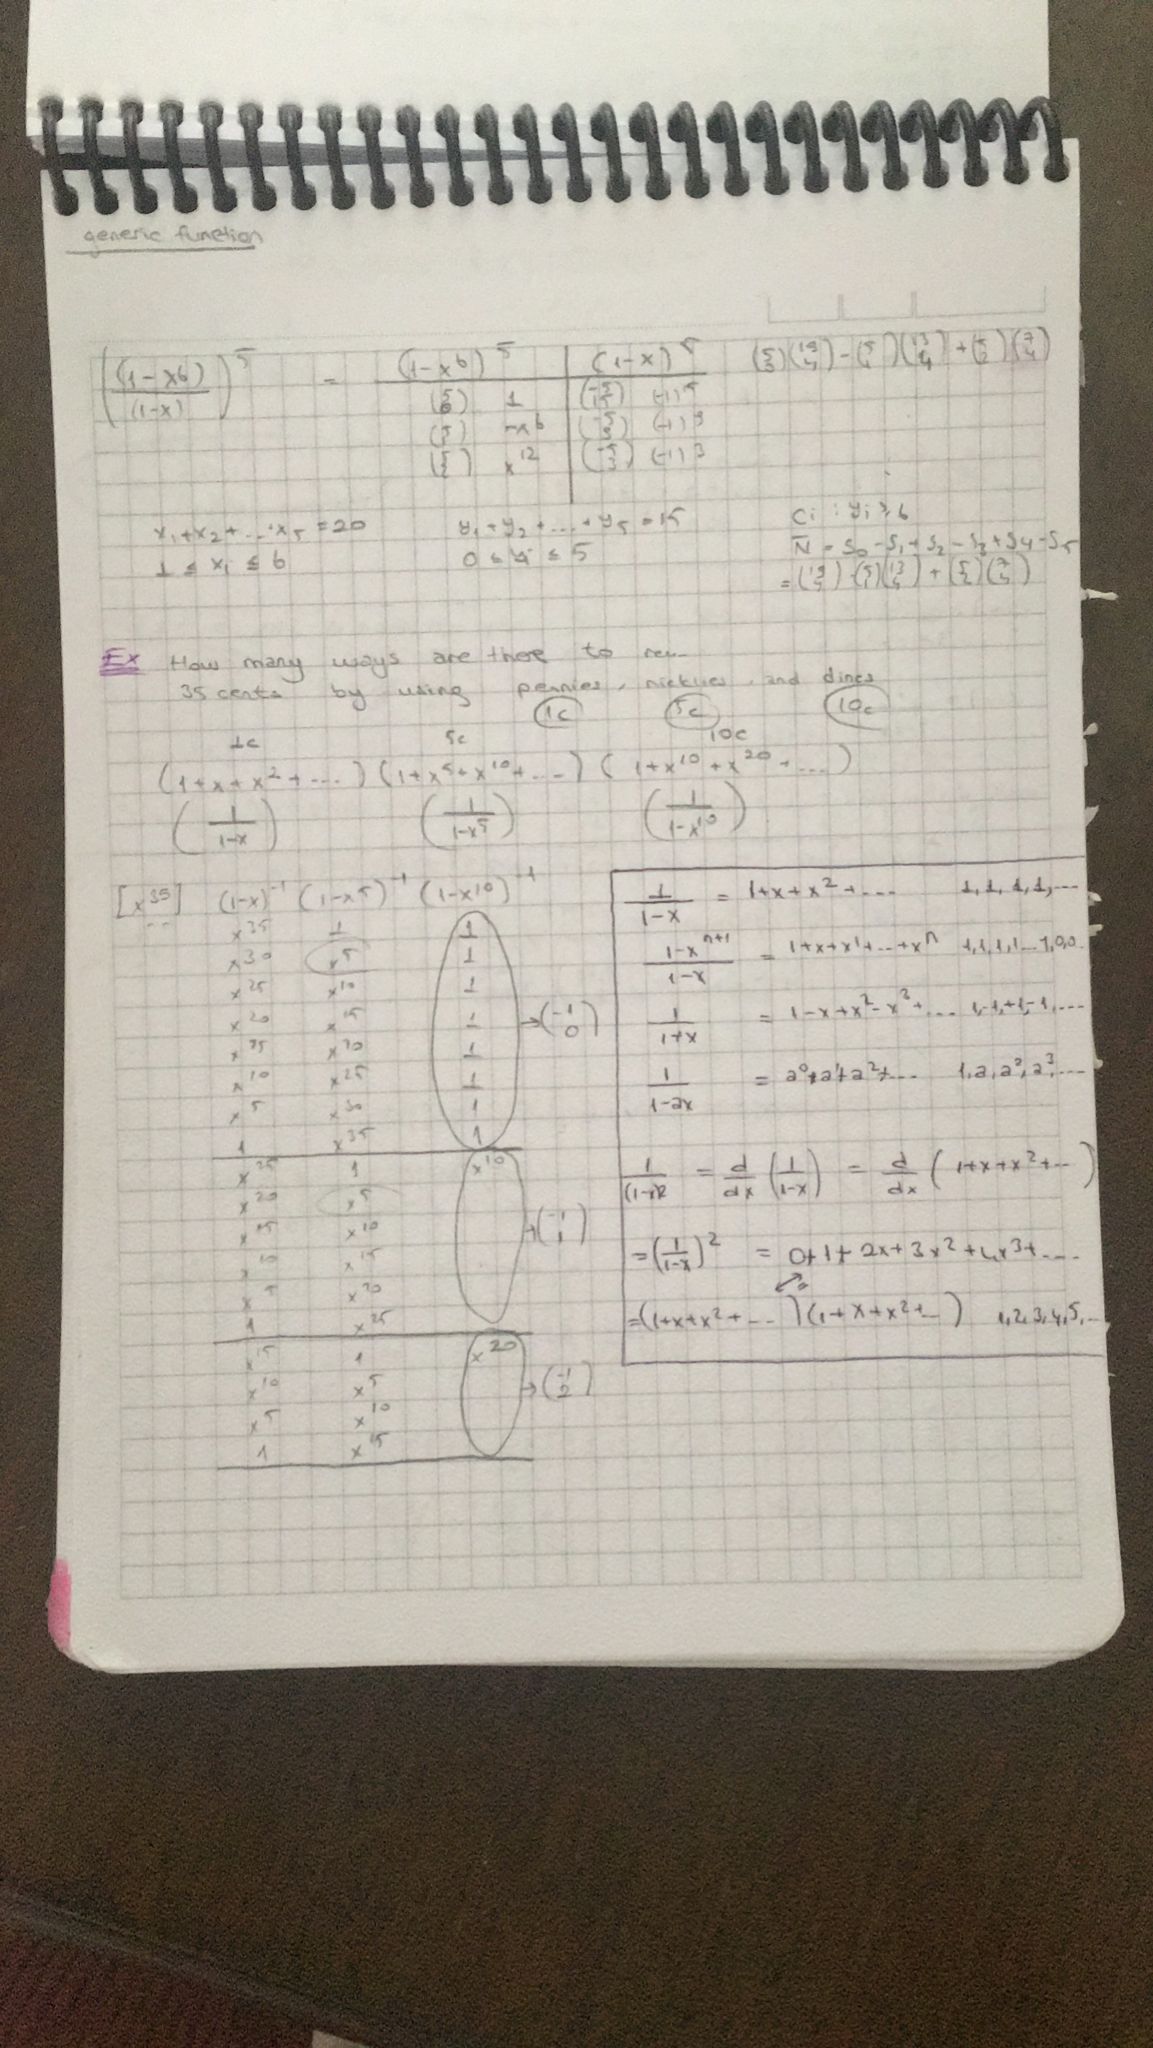 generic function
((1-x⁶)/(1-x))⁵ = (1-x⁶)⁵ | (1-x)⁵
1
-x⁶
x¹²
x₁+x₂+...+x₅ = 20 y₁+y₂+...+y₅ = 15 Ci : yi ≥ 6
1 ≤ xi ≤ 6 0 ≤ yi ≤ 5 N̄ = S₀-S₁+S₂-S₃+S₄-S₅
Ex How many ways are there to
35 cents by using pennies, nickles, and dimes
1c 5c 10c
1c 5c 10c
(1+x+x²+....) (1+x⁵+x¹⁰+....) (1+x¹⁰+x²⁰+...)
(1/(1-x)) (1/(1-x⁵)) (1/(1-x¹⁰))
[x³⁵] (1-x)⁻¹ (1-x⁵)⁻¹ (1-x¹⁰)⁻¹
x³⁵ 1 1
x³⁰ x⁵ 1
x²⁵ x¹⁰ 1
x²⁰ x¹⁵ 1 → (-1 0)
x¹⁵ x²⁰ 1
x¹⁰ x²⁵ 1
x⁵ x³⁰ 1
1 x³⁵ 1
x²⁵ 1 x¹⁰
x²⁰ x⁵
x¹⁵ x¹⁰ → (-1 1)
x¹⁰ x¹⁵
x⁵ x²⁰
1 x²⁵
x¹⁵ 1 x²⁰
x¹⁰ x⁵ → (-1 2)
x⁵ x¹⁰
1 x¹⁵
1/(1-x) = 1+x+x²+.... 1,1,1,1,...
(1-xⁿ⁺¹)/(1-x) = 1+x+x¹+...+xⁿ 1,1,1,1...1,0,0..
1/(1+x) = 1-x+x²-x³+... 1,-1,+1,-1,....
1/(1-ax) = a⁰+a¹+a²+... 1,a,a²,a³,...
1/(1-x)² = d/dx (1/(1-x)) = d/dx (1+x+x²+...)
= (1/(1-x))² = 0+1+2x+3x²+4x³+....
= (1+x+x²+...)(1+x+x²+...) 1,2,3,4,5,...